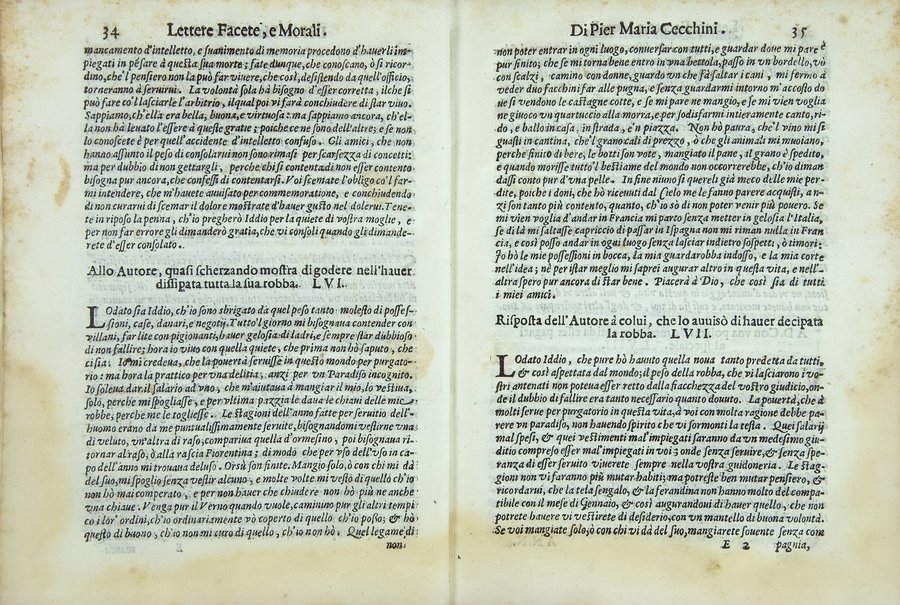 34 Lettere Facete, e Morali.
mancamento d'intelletto, e suanimento di memoria procedono d'hauerli im-
piegati in pēsare à questa sua morte; fate dunque, che conoscano, ò si ricor-
dino, che'l pensiero non la può far viuere, che così, desistendo da quell'officio,
torneranno à seruirui. La volontà sola hà bisogno d'esser corretta, ilche si
può fare co'l lasciarle l'arbitrio, il qual poi vi farà conchiudere di star viuo.
Sappiamo, ch'ella era bella, buona, e virtuosa: ma sappiamo ancora, ch'el-
la non hà leuato l'essere à queste gratie; poiche ce ne sono dell'altre; e se non
lo conoscete è per quell'accidente d'intelletto confuso. Gli amici, che non
hanno assunto il peso di consolarui non sono rimasi per scarsezza di concetti:
ma per dubbio di non gettargli, perche chi si contenta di non esser contento
bisogna pur ancora, che confessi di contentarsi. Voi scemate l'obligo co'l far-
mi intendere, che m'hauete auuisato per commemoratione, e conchiudendo
di non curarui di scemar il dolore mostrate d'hauer gusto nel dolerui. Tene-
te in riposo la penna, ch'io pregherò Iddio per la quiete di vostra moglie, e
per non far errore gli dimanderò gratia, che vi consoli quando gli dimande-
rete d'esser consolato.
Allo Autore, quasi scherzando mostra di godere nell'hauer
dissipata tutta la sua robba. LVI.
LOdato sia Iddio, ch'io sono sbrigato da quel peso tanto molesto di posses-
sioni, case, danari, e negotij. Tutto'l giorno mi bisognaua contender con
villani, far lite con pigionanti, hauer gelosia di ladri, e sempre star dubbioso
di non fallire; hora io viuo con quella quiete, che prima non hò saputo, che
ci sia. Io mi credeua, che la pouertà seruisse in questo mondo per purgato-
rio: ma hora la prattico per vna delitia, anzi per vn Paradiso incognito.
Io soleua dar il salario ad vno, che m'aiutaua à mangiar il mio, lo vestiua,
solo, perche mi spogliasse, e per vltima pazzia le daua le chiaui delle mie
robbe, perche me le togliesse. Le stagioni dell'anno fatte per seruitio dell'-
huomo erano da me puntualissimamente seruite, bisognandomi vestirne vna
di veluto, vn'altra di raso, compariua quella d'ormesino, poi bisognaua ri-
tornar al raso, ò alla rascia Fiorentina; di modo che per vso dell'vso in ca-
po dell'anno mi trouaua deluso. Orsù son finite. Mangio solo, ò con chi mi dà
del suo, mi spoglio senza vestir alcuno, e molte volte mi vestò di quello ch'io
non hò mai comperato, e per non hauer che chiudere non hò più ne anche
vna chiaue. Venga pur il Verno quando vuole, camino pur gli altri tempi
co i lor'ordini, ch'io ordinariamente vò coperto di quello ch'io posso; & hò
questo di buono, ch'io non mi curo di quello, ch'io non hò. Quel legame di
non
Di Pier Maria Cecchini. 35
non poter entrar in ogni luogo, conuersar con tutti, e guardar doue mi pare è
pur finito; che se mi torna bene entro in vna bettola, passo in vn bordello, vò
con scalzi, camino con donne, guardo vn che fà saltar i cani, mi fermo à
veder duo facchini far alle pugna, e senza guardarmi intorno m'accosto do
ue si vendono le castagne cotte, e se mi pare ne mangio, e se mi vien voglia
ne giuoco vn quartuccio alla morra, e per sodisfarmi intieramente canto, ri-
do, e ballo in casa, in strada, e'n piazza. Non hò paura, che'l vino mi si
guasti in cantina, che'l grano cali di prezzo, ò che gli animali mi muoiano,
perche finito di bere, le botti son vote, mangiato il pane, il grano è spedito,
e quando morisse tutto'l bestiame del mondo non occorrerebbe, ch'io diman
dassi conto pur d'vna pelle. In fine niuno si quereli già meco delle mie per-
dite, poiche i doni, che hò riceuuti dal Cielo me le fanno parere acquisti, a n-
zi son tanto più contento, quanto, ch'io sò di non poter venir più pouero. Se
mi vien voglia d'andar in Francia mi parto senza metter in gelosia l'Italia,
se di là mi saltasse capriccio di passar in Ispagna non mi riman nulla in Fran
cia, e così posso andar in ogni luogo senza lasciar indietro sospetti, ò timori:
Io hò le mie possessioni in bocca, la mia guardarobba indosso, e la mia corte
nell'idea; nè per istar meglio mi saprei augurar altro in questa vita, e nell'-
altra spero pur ancora di star bene. Piacerà à Dio, che così sia di tutti
i miei amici.
Risposta dell'Autore à colui, che lo auuisò di hauer decipata
la robba. LVII.
LOdato Iddio, che pure hò hauuto quella noua tanto predetta da tutti,
& così aspettata dal mondo; il peso della robba, che vi lasciarono i vo-
stri antenati non poteua esser retto dalla fiacchezza del vostro giudicio, on-
de il dubbio di fallire era tanto necessario quanto douuto. La pouertà, che à
molti serue per purgatorio in questa vita, à voi con molta ragione debbe pa-
rere vn paradiso, non hauendo spirito che vi sormonti la testa. Quei salarij
mal spesi, & quei vestimenti mal'impiegati saranno da vn medesimo giu-
ditio compreso esser mal'impiegati in voi; onde senza seruire, & senza spe-
ranza di esser seruito viuerete sempre nella vostra guidoneria. Le stag-
gioni non vi faranno più mutar habiti; ma potreste ben mutar pensiero, &
ricordarui, che la tela sengalo, & la ferandina non hanno molto del compa-
tibile con il mese di Gennaio, & così augurandoui di hauer quello, che non
potrete hauere vi vestirete di desiderio, con vn mantello di buona volontà.
Se voi mangiate solo, ò con chi vi dà del suo, mangiarete souente senza com
E 2 pagnia,